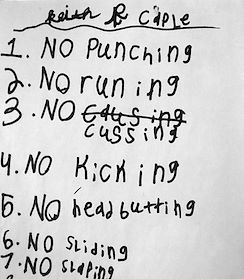 keith & Caple
1. NO Punching
2. NO runing
3. NO caussing
cussing
4. NO Kicking
5. NO headbutting
6. NO sliding
7. NO slaping